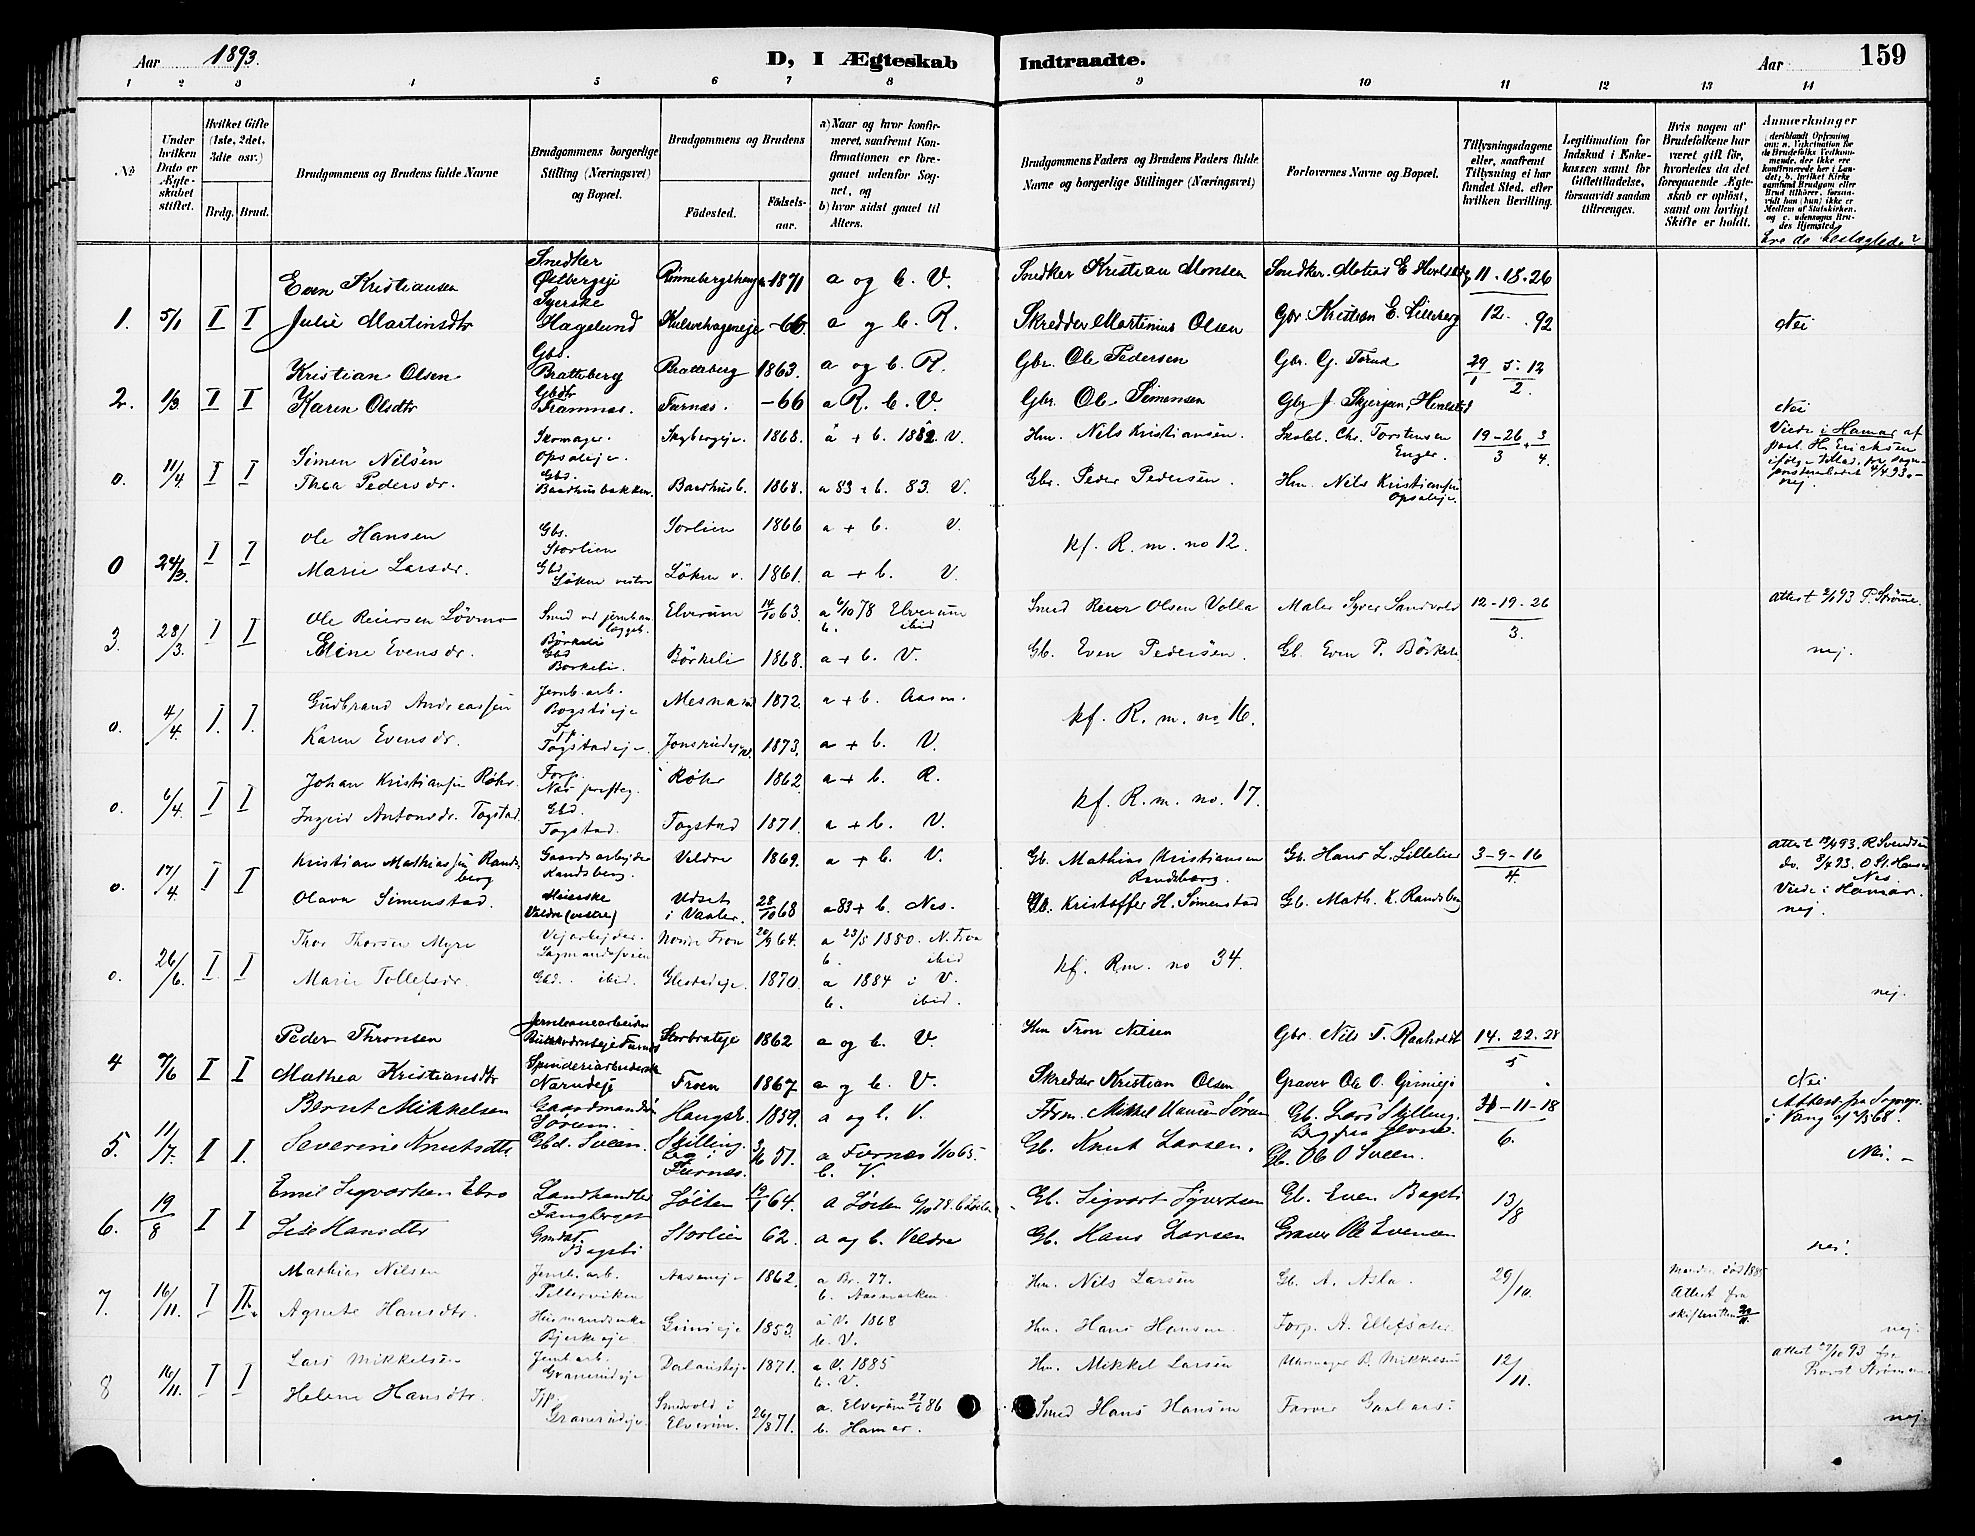 Aar 1893. D, I Ægteskab Indtraadte. Aar 159
1 2 3 4 5 6 7 8 9 10 11 12 13 14
No
Under hvilken Dato er Ægteskabet stiftet.
Hvilket Gifte (1ste, 2det, 3die osv.)
Brdg. Brud.
Brudgommens og Brudens fulde Navne
Brudgommens borgerlige Stilling (Næringsvei) og Bopæl.
Brudgommens og Brudens
Fødested. Fødselsaar.
a) Naar og hvor konfirmeret, saafremt Konfirmationen er foregaaet udenfor Sognet, og
b) hvor sidst gaaet til Alters.
Brudgommens Faders og Brudens Faders fulde Navne og borgerlige Stillinger (Næringsvei)
Forlovernes Navne og Bopæl.
Tillysningsdagene eller, saafremt Tillysning ei har fundet Sted, efter hvilken Bevilling.
Legitimation for Indskud i Enkekassen samt for Giftetilladelse, forsaavidt saadan tiltrænges.
Hvis nogen af Brudefolkene har været gift før, hvorledes da det foregaaende Ægteskab er opløst, samt om lovligt Skifte er holdt.
Anmærkninger
Ere de beslægtede?
1. 5/1 I I Even Kristiansen Snedker Østbergeje 1871 a og b. V. Snedker Kristian Monsen 11-18-26
Julie Martinsdtr Syerske Hagelund -66. a og b. R. Skredder Martinius Olsen Gbr. Kristian E. Lilleberg 12. 92 Nei
2. 1/3 I I Kristian Olsen Gbs. Bratteberg Bratteberg 1863. a og b. R. Gbr. Ole Pedersen Gbr. G. Torud 29/1 5-12/2
Karen Olsdtr Gbdtr Framnæs. Furnæs. -66 a R. b. V. Gbr. Ole Simensen Nei
0. 11/4 I I Simen Nilsen Skomager. Opsaleje. Skybergeje. 1868. a + b. 1882 V. Hm. Nils Kristiansen. Skolel. Chr. Torstensen Enger. 19-26/3 + 3/4. Viede i Hamar af past. H. Ericksen
Thea Pedersdr. Gbd. Baarhusbakken. Baarhusb. 1868. a 83 + b. 83. V. Gbr. Peder Pedersen. Hm. Nils Kristiansen Opsaleje nej.
0 24/3. I I Ole Hansen Gbs. Storlien Sorlien 1866 a + b. V. kf. R. m. no 12.
Marie Larsdr. Gbd. Løken vestre Løken v. 1861. a + b. V.
3. 28/3. I I Ole Reiersen Løvmo Smed ved jernbanelægget. Børkeli Elverum 14/10 63. a 6/10 78 Elverum b. ibid Smed Reier Olsen Volla Maler Syver Sandvold 12-19-26/3. attest 2/1 93 P. Strøme.
Eline Evensdr. Gbs Børkeli. Børkeli 1868. a + b. V. Gb. Even Pedersen. Gb. Even P. Børkeli nej.
0. 4/4. I. I. Gudbrand Andreassen Jernb. arb. Bogstieje Mesna 1872. a + b. Aasm. kf. R. m. no 16.
Karen Evensdr. Tp. Togstadeje. 1873. a + b. V.
0. 6/4. I I Johan Kristiansen Røhr Forp. Næs presteg. Røhr 1862. a + b. R. kf. R. m. no. 17.
Ingeid Antonsdr. Togstad Gbd. Togstad. Togstad 1871. a + b. V.
0. 17/4. I I Kristian Mathiassen Randsberg Gaardsarbejder Randsberg. Veldre 1869. a + b. V. Gb. Mathias Kristiansen Randsberg. Gb. Hans L. Lillelien 3-9-16/4. R. Svendsen Nes
Olava Simenstad. Meierske Veldre (vestre) Udset i Vaaler 28/10 68 a 83 + b. Nes. Gb. Kristoffer H. Simenstad Gb. Math. K. Randsberg Viede i Hamar. nej.
0. 26/6. I I Thor Thorsen Myre Vejarbejder. Nordre Fron 20/9 64. a 23/5 1880. N. Fron b. ibid kf. Rm. no 34.
Marie Tollefsdr. Gbd. ibid. Glestadeje 1870. a 1884 i V. b. ibid. nej.
4 9/6 I I Peder Thronsen Jernbanearbeider Storbrateje 1862 a og b. V. Hm Tron Nilsen Gbr. Nils T. Raaholdt 14. 22. 28/5
Mathea Kristiansdtr Spinderiarbeiderske Narudeje Froen 1867 a og b. V. Skredder Kristian Olsen Graver Ole O. Grinieje Nei
5. 11/7. I I. Bernt Mikkelsen Gaardmandss. Sørum. 1859. a og b. V. Form. Mikkel Hansen Sørum Gb. Lars Skilling. 31-11-18/6. Attest fra Sognepr. i Vang
Severine Knutsdtr Gbd. Sveen. Skilling i Furnæs. 51. a Furnæs 1/10 65. b. V. Gb. Knut Larsen. Gb. Ole O Sveen. Nei. -
6. 19/8 I I Emil Sigvartsen Ebro Landhandler Fangberget Løiten 64. a Løiten b Løiten Gb. Sigvart Syvertsen Gb. Even Bagsti 13/8
Lise Hansdtr Gmdat. Bagsti Storlien 62. a og b. Veldre Gb. Hans Larsen Graver Ole Evensen nei.
7. 16/11. I II. Mathias Nilsen Jernb. arb. Tillerviken Aaseneje 1862. a Br. 77. b. Aasmarken. Hm. Nils Larsen Gb. A. Asla. 29/10. Manden død 1885 Attest fra skifteretten
Agnete Hansdtr. Husmandsenke Bjerkeeje. Grinieje 1853. a V. 1868 b. V. Hm. Hans Hansen Forp. A. Ellefsæter. nej.
8 16/11. I I Lars Mikkelsen Jernb arb. Granerudeje Dalauteje 1871. a V. 1885 b. V. Hm. Mikkel Larsen Uhrmager B. Mikkelsen 12/11. attest 27/10 93 fra Provst Strømme
Helene Hansdtr. Tjp. Granerudeje. Smedvold i Elverum. 26/8 71. a. Elverum 27/6 86 b. Hamar. Smed Hans Hansen Farver Gaalaas. nej